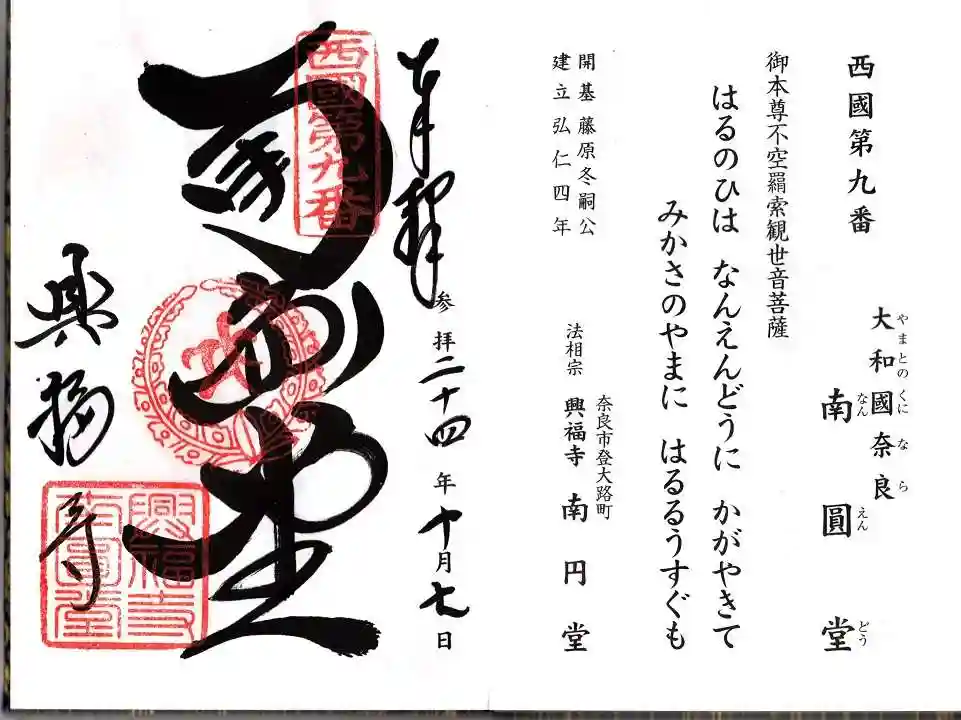 西國第九番
大和國奈良
やまとのくになら
南圓堂
なんえんどう
御本尊不空羂索観世音菩薩
はるのひは なんえんどうに かがやきて
みかさのやまに はるるうすぐも
開基藤原冬嗣公
建立弘仁四年
奈良市登大路町
法相宗 興福寺 南円堂
奉拝
参拝二十四年十月七日
西國第九番
興福寺
興福寺
南圓堂